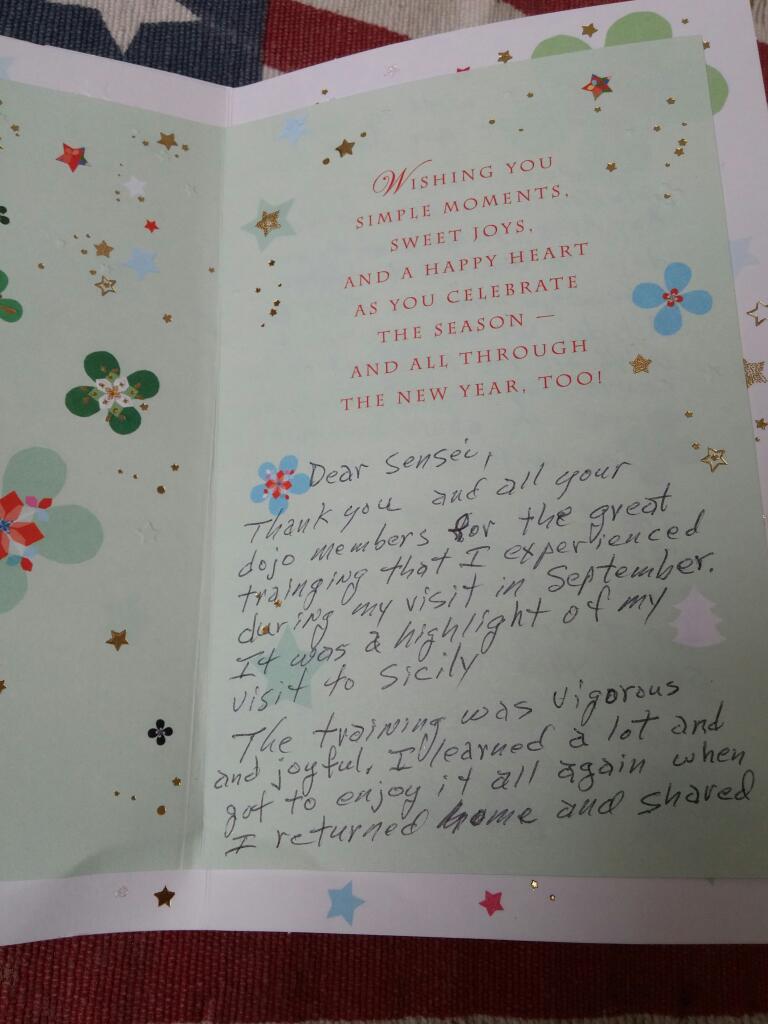 WISHING YOU
SIMPLE MOMENTS,
SWEET JOYS,
AND A HAPPY HEART
AS YOU CELEBRATE
THE SEASON —
AND ALL THROUGH
THE NEW YEAR, TOO!
Dear Sensei,
Thank you and all your
dojo members for the great
trainging that I experienced
during my visit in September.
It was a highlight of my
visit to Sicily
The training was vigorous
and joyful. I learned a lot and
got to enjoy it all again when
I returned home and shared